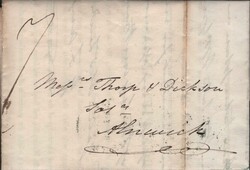 7
Mess.rs Thorp & Dickson
Sol.rs
Alnwick